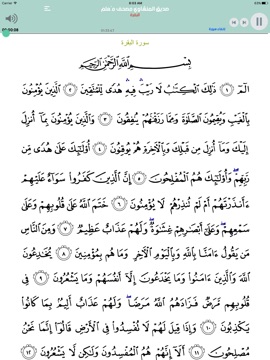 صديق المنشاوي مصحف معلم
البقرة
سورة البقرة
بِسْمِ اللَّهِ الرَّحْمَٰنِ الرَّحِيمِ
الٓمٓ ١ ذَٰلِكَ الْكِتَٰبُ لَا رَيْبَ فِيهِ هُدًى لِّلْمُتَّقِينَ ٢ الَّذِينَ يُؤْمِنُونَ
بِالْغَيْبِ وَيُقِيمُونَ الصَّلَوٰةَ وَمِمَّا رَزَقْنَٰهُمْ يُنفِقُونَ ٣ وَالَّذِينَ يُؤْمِنُونَ بِمَآ أُنزِلَ
إِلَيْكَ وَمَآ أُنزِلَ مِن قَبْلِكَ وَبِالْءَاخِرَةِ هُمْ يُوقِنُونَ ٤ أُولَٰٓئِكَ عَلَىٰ هُدًى مِّن
رَّبِّهِمْ وَأُولَٰٓئِكَ هُمُ الْمُفْلِحُونَ ٥ إِنَّ الَّذِينَ كَفَرُوا سَوَآءٌ عَلَيْهِمْ
ءَأَنذَرْتَهُمْ أَمْ لَمْ تُنذِرْهُمْ لَا يُؤْمِنُونَ ٦ خَتَمَ اللَّهُ عَلَىٰ قُلُوبِهِمْ وَعَلَىٰ
سَمْعِهِمْ وَعَلَىٰٓ أَبْصَٰرِهِمْ غِشَٰوَةٌ وَلَهُمْ عَذَابٌ عَظِيمٌ ٧ وَمِنَ النَّاسِ
مَن يَقُولُ ءَامَنَّا بِاللَّهِ وَبِالْيَوْمِ الْءَاخِرِ وَمَا هُم بِمُؤْمِنِينَ ٨ يُخَٰدِعُونَ
اللَّهَ وَالَّذِينَ ءَامَنُوا وَمَا يَخْدَعُونَ إِلَّآ أَنفُسَهُمْ وَمَا يَشْعُرُونَ ٩ فِي
قُلُوبِهِم مَّرَضٌ فَزَادَهُمُ اللَّهُ مَرَضًا وَلَهُمْ عَذَابٌ أَلِيمٌ بِمَا كَانُوا
يَكْذِبُونَ ١٠ وَإِذَا قِيلَ لَهُمْ لَا تُفْسِدُوا فِي الْأَرْضِ قَالُوٓا إِنَّمَا نَحْنُ
مُصْلِحُونَ ١١ أَلَآ إِنَّهُمْ هُمُ الْمُفْسِدُونَ وَلَٰكِن لَّا يَشْعُرُونَ ١٢